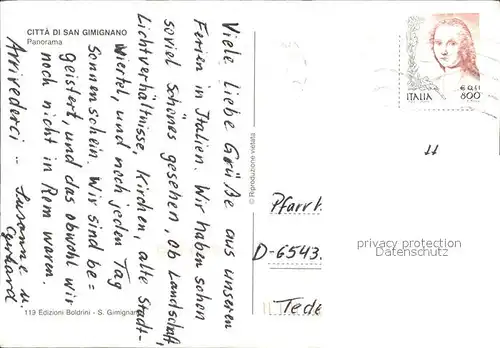 CITTÀ DI SAN GIMIGNANO
Panorama
Viele liebe Grüße aus unseren
Ferien in Italien. Wir haben schon
soviel schönes gesehen, ob Landschaft,
Lichtverhältnisse, Kirchen, alte Stadt-
viertel, und noch jeden Tag
Sonnenschein. Wir sind be=
geistert, und das obwohl wir
noch nicht in Rom waren.
Arrivederci -
Susanne u.
Gerhard
119 Edizioni Boldrini - S. Gimignano
© Riproduzione vietata
ITALIA
800
Pfarr
D-6543
Tede
privacy protection
Datenschutz